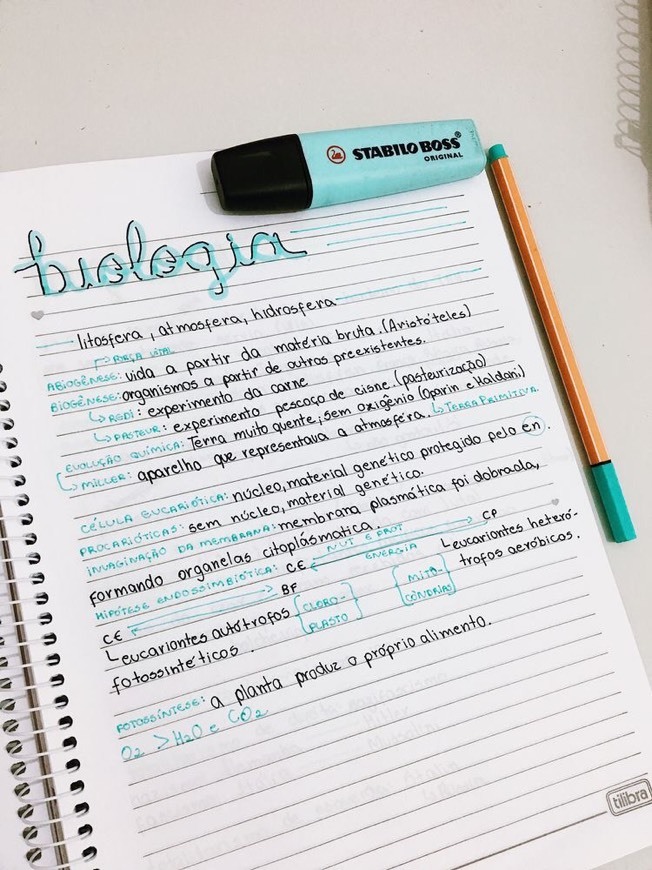 STABILO BOSS®
ORIGINAL
biologia
litosfera, atmosfera, hidrosfera
↱ FORÇA VITAL
ABIOGÊNESE: vida a partir da matéria bruta. (Aristóteles)
BIOGÊNESE: organismos a partir de outros preexistentes.
↳ REDI: experimento da carne
↳ PASTEUR: experimento pescoço de cisne. (pasteurização)
EVOLUÇÃO QUÍMICA: Terra muito quente, sem oxigênio (Oparin e Haldani)
↳ MILLER: aparelho que representava a atmosfera. ↳ TERRA PRIMITIVA.
CÉLULA EUCARIÓTICA: núcleo, material genético protegido pelo en.
PROCARIÓTICAS: sem núcleo, material genético.
INVAGINAÇÃO DA MEMBRANA: membrara plasmática foi dobrada,
formando organelas citoplásmatica.
HIPÓTESE ENDOSSIMBIÓTICA: CE NUT E PROT ENERGIA CP
CE BF
Leucariontes heteró-
trofos aeróbicos.
MITO-
CÔNDRIAS
Leucariontes autótrofos
fotossintéticos.
CLORO-
PLASTO
FOTOSSÍNTESE: a planta produz o próprio alimento.
O2 > H2O e CO2
tilibra